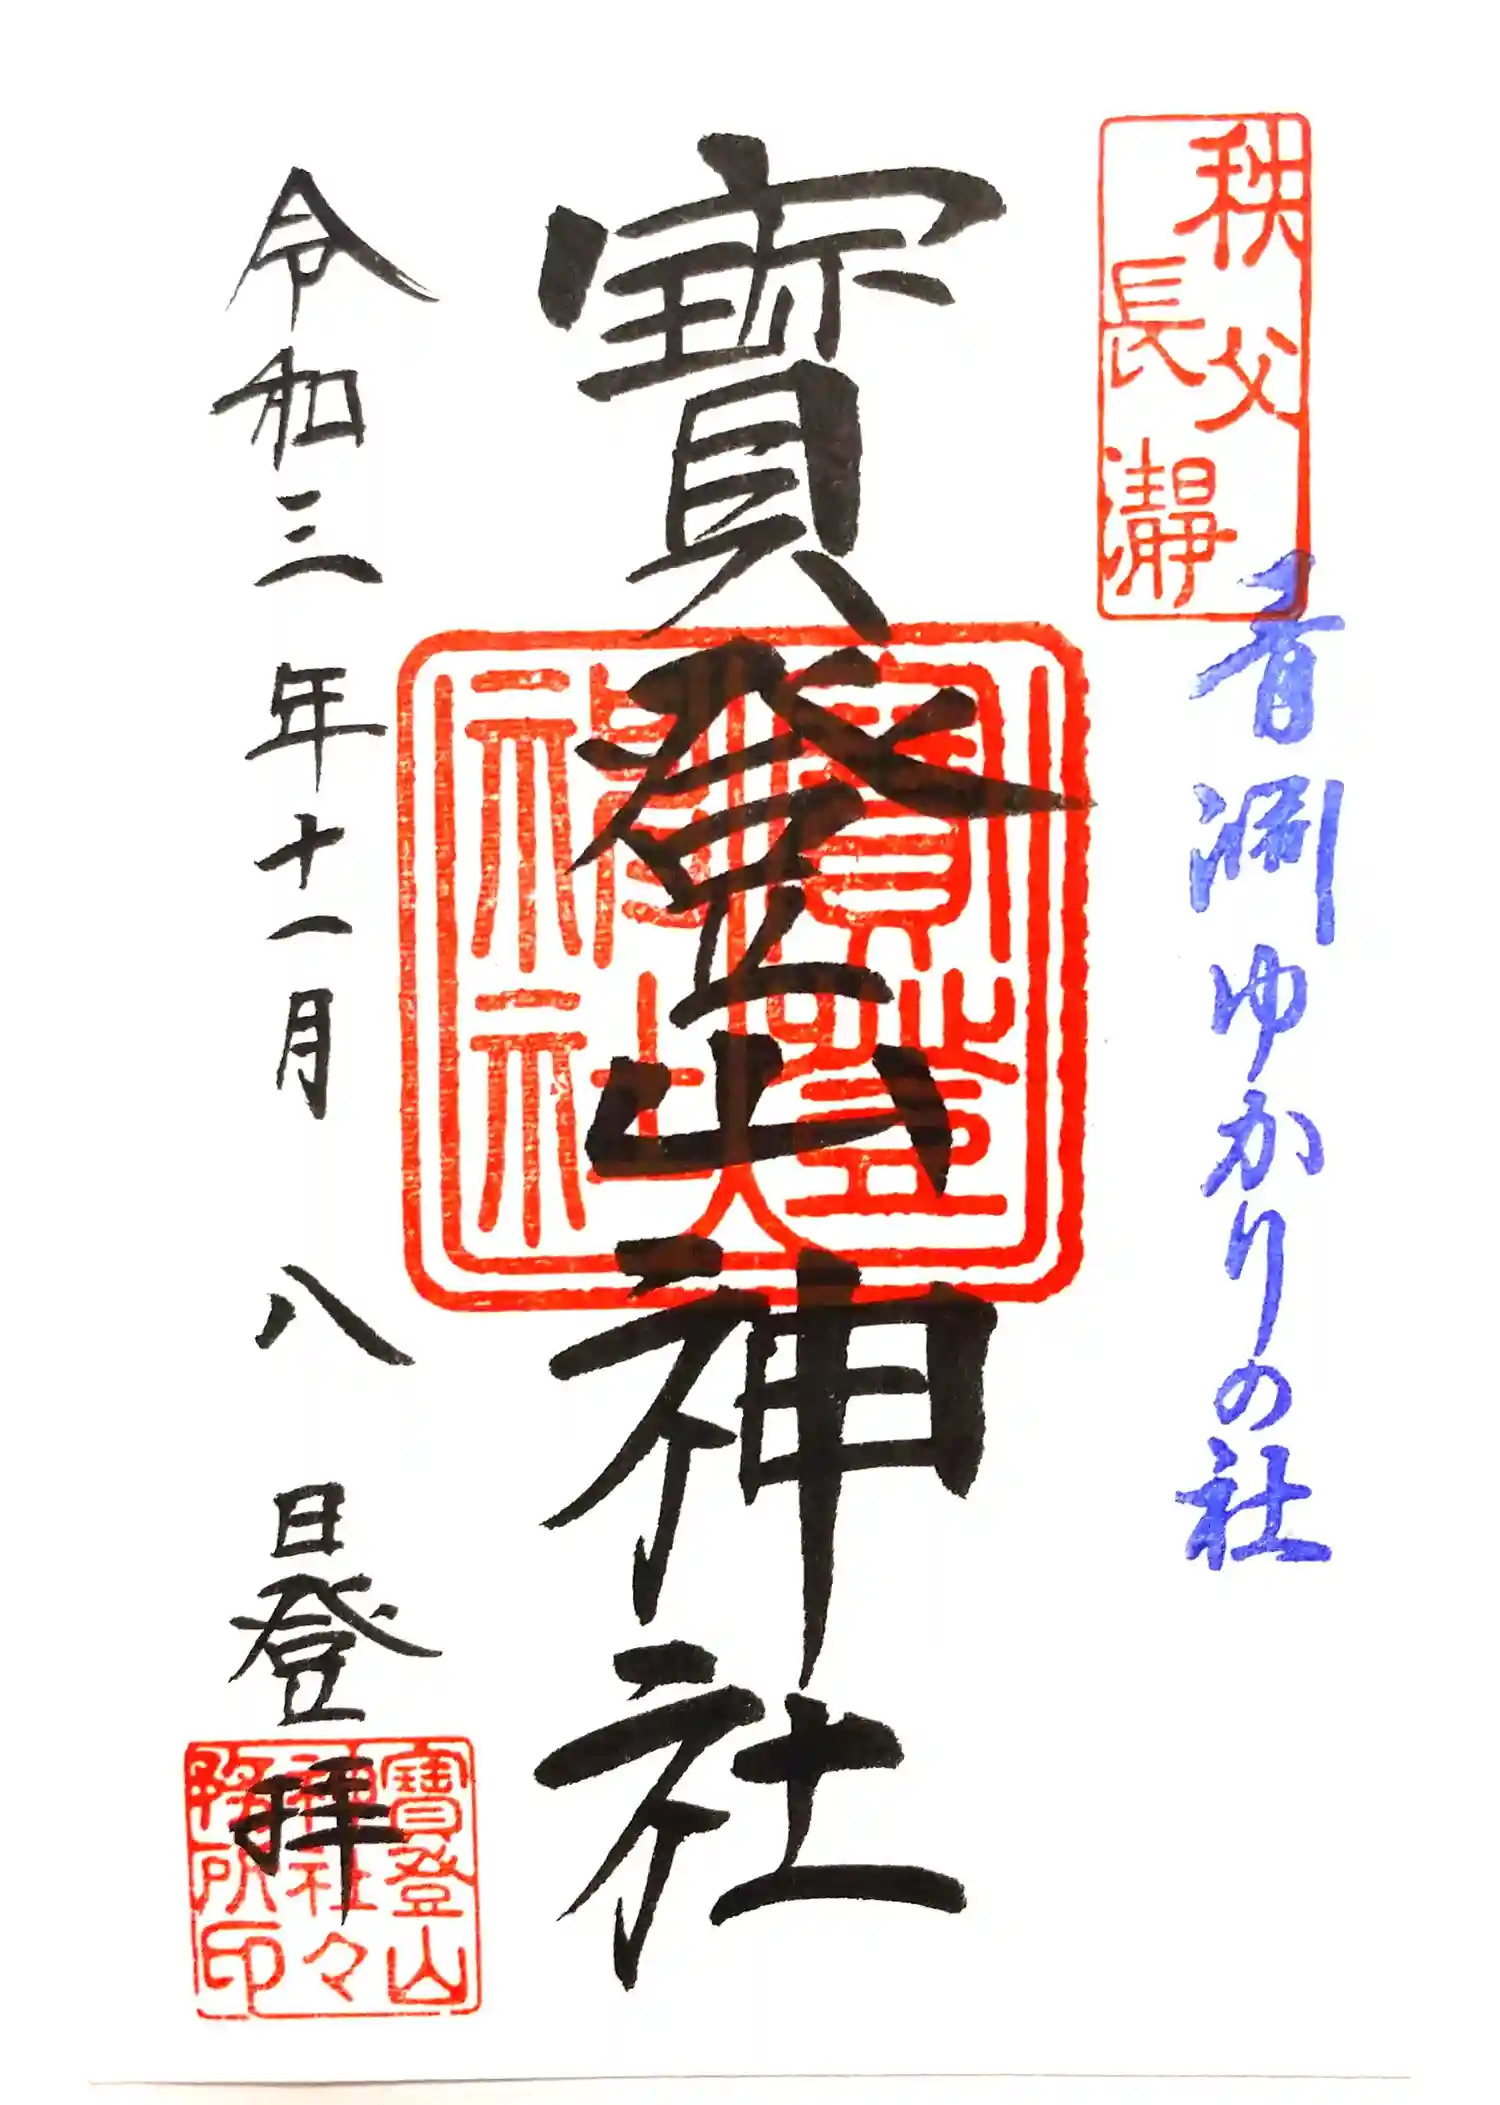 秩父
長瀞
青淵ゆかりの社
寳登山神社
令和三年十一月八日登拝
寳登山
神社々
務所印